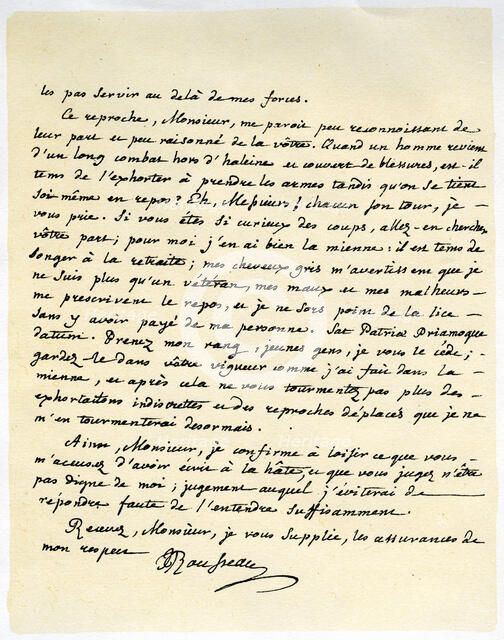 les pas servir au delà de mes forces.
Ce reproche, Monsieur, me paroit peu reconnoissant de
leur part et peu raisonné de la vôtre. Quand un homme revient
d'un long combat hors d'haleine et couvert de blessures, est-il
tems de l'exhorter à prendre les armes tandis qu'on se tient
soi-même en repos? Eh, Messieurs! chacun son tour, je
vous prie. Si vous êtes si curieux des coups, allez-en chercher
vôtre part; pour moi j'en ai bien la mienne: il est tems de
songer à la retraite; mes cheveux gris m'avertissent que je
ne suis plus qu'un vétéran, mes maux et mes malheurs
me prescrivent le repos, et je ne sors point de la lice
sans y avoir payé de ma personne. Sat Patriæ Priamoque
datum. Prenez mon rang, jeunes gens, je vous le cède;
gardez-le dans vôtre vigueur comme j'ai fait dans la
mienne, et après cela ne vous tourmentez pas plus des
exhortations indiscrettes et des reproches déplacés que je ne
m'en tourmenterai desormais.
Ainsi, Monsieur, je confirme à loisir ce que vous
m'accusez d'avoir écrit à la hâte, et que vous jugez n'être
pas digne de moi; jugement auquel j'éviterai de
repondre faute de l'entendre suffisamment.
Recevez, Monsieur, je vous supplie, les assurances de
mon respect
JJRousseau
Heritage
Heritage